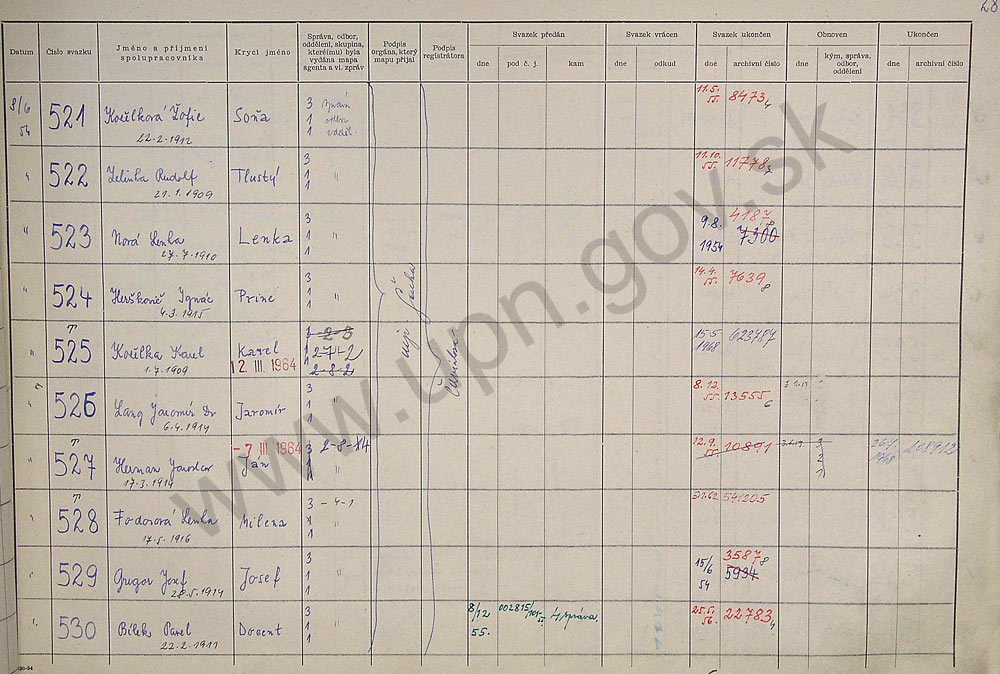 28
Datum
Číslo svazku
Jméno a příjmení spolupracovníka
Krycí jméno
Správa, odbor, oddělení, skupina, které(mu) byla vydána mapa agenta a vl. zpráv
Podpis orgána, který mapu přijal
Podpis registrátora
Svazek předán
dne pod č. j. kam
Svazek vrácen
dne odkud
Svazek ukončen
dne archivní číslo
Obnoven
dne kým, správa, odbor, oddělení
Ukončen
dne archivní číslo
9/6 54 521 Žofie Soňa 3 1 1 11.5. 55. 8473 4
22-2-1912
522 Jelinka Rudolf Tlustý 3 1 1 " 11.10. 55. 11778 7
21.1.1909
523 Nová Lenka Lenka 3 1 1 " 9.8. 1954 4187 8 7300
27.7.1910
524 Herškovič Ignác Princ 3 1 1 " 14.4. 55. 7639 8
4.3.1915
525 Karel Karel 2-8-2 15-5 1968 623787
1.7.1909 12. III. 1964
526 Lang Jaromír Dr Jaromír 3 1 1 " 8.12. 55. 13555 6
6.4.1914
527 Herman Jaroslav – 7. III 1964 Ján 3 2-8-14 12.9. 55. 10891 3 2 1 1968 108912
17.3.1914
528 Fodorová Lenka Milena 3 – 4-1 541205
17.5.1916
529 Gregor Josef Josef 3 1 1 " 15/6 54 3587 8 5934
28.5.1914
530 Bílek Pavel Docent 3 1 1 8/12 55. 4 správa 25.5. 56. 22783 4
22.2.1911
www.upn.gov.sk